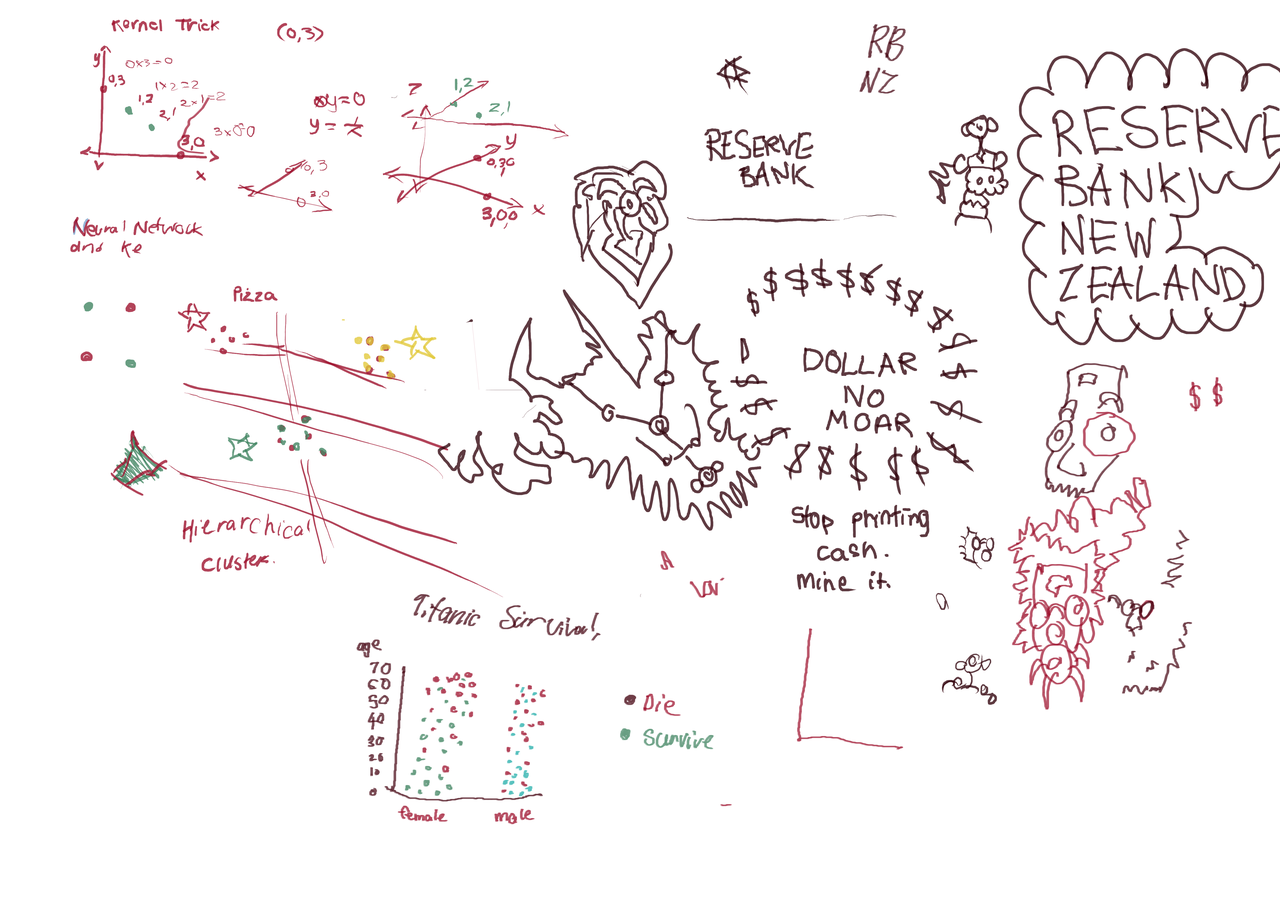 Kernel Trick
(0,3)
y
0x3=0
0,3
1x2=2
1,2
2x1=2
2,1
3x0=0
3,0
x
xy=0
z
1,2
2,1
y
0,3,0
3,0,0
x
0,3
3,0
Neural Network
and ke
Pizza
Hierarchical
Cluster.
RB
NZ
RESERVE
BANK
RESERVE
BANK
NEW
ZEALAND
$ $ $ $ $ $ $ $ $
DOLLAR
NO
MOAR
$ $ $ $ $
$ $
Stop printing
cash.
mine it.
Titanic Survival
age
70
60
50
40
30
20
10
0
female male
Die
Survive